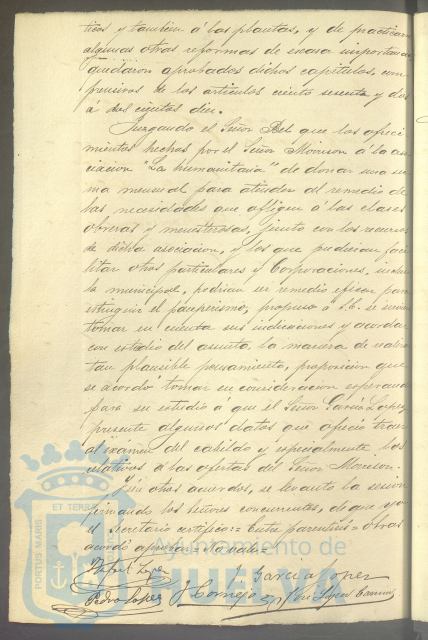 ticos y tambien á las plantas, y de practicarse
algunas otras reformas de escasa importancia
quedaron aprobados dichos capitulos, com-
prensivos de los articulos ciento sesenta y dos
á
Juzgando el Señor Bel que los ofreci
mientos hechos por el Señor Morrison á la aso
ciacion "La humanitaria" de donar una su
ma mensual para atender al remedio de
las necesidades que afligen á las clases
obreras y menesterosas, junto con los recursos
de dicha asociacion, y los que pudieran faci
litar otros particulares y Corporaciones, inclusa
la municipal, podrian ser remedio eficaz para
estinguir el pauperismo, propuso á S.E. se sirviera
tomar en cuenta sus indicaciones y acordar
con estudio del asunto la manera de realizar
tan plausible pensamiento, proposicion que
se acordó tomar en consideracion esperando
para su estudio á que el Señor Garcia Lopez
presente algunos datos que ofreció traer
al examen del cabildo y especialmente los
relativos á las ofertas del Señor Morrison.
Sin otros acuerdos, se levantó la sesion
firmando los señores concurrentes, de que yo
el Secretario certifico = Entre parentesis = otras
acordó aprobar = No vale =
Rafael Lopez
J. Garcia Lopez
Pedro Lopez J. Cornejo José Lopez
PORTUS MARIS
ET TERRAE
Ayuntamiento de
HUELVA